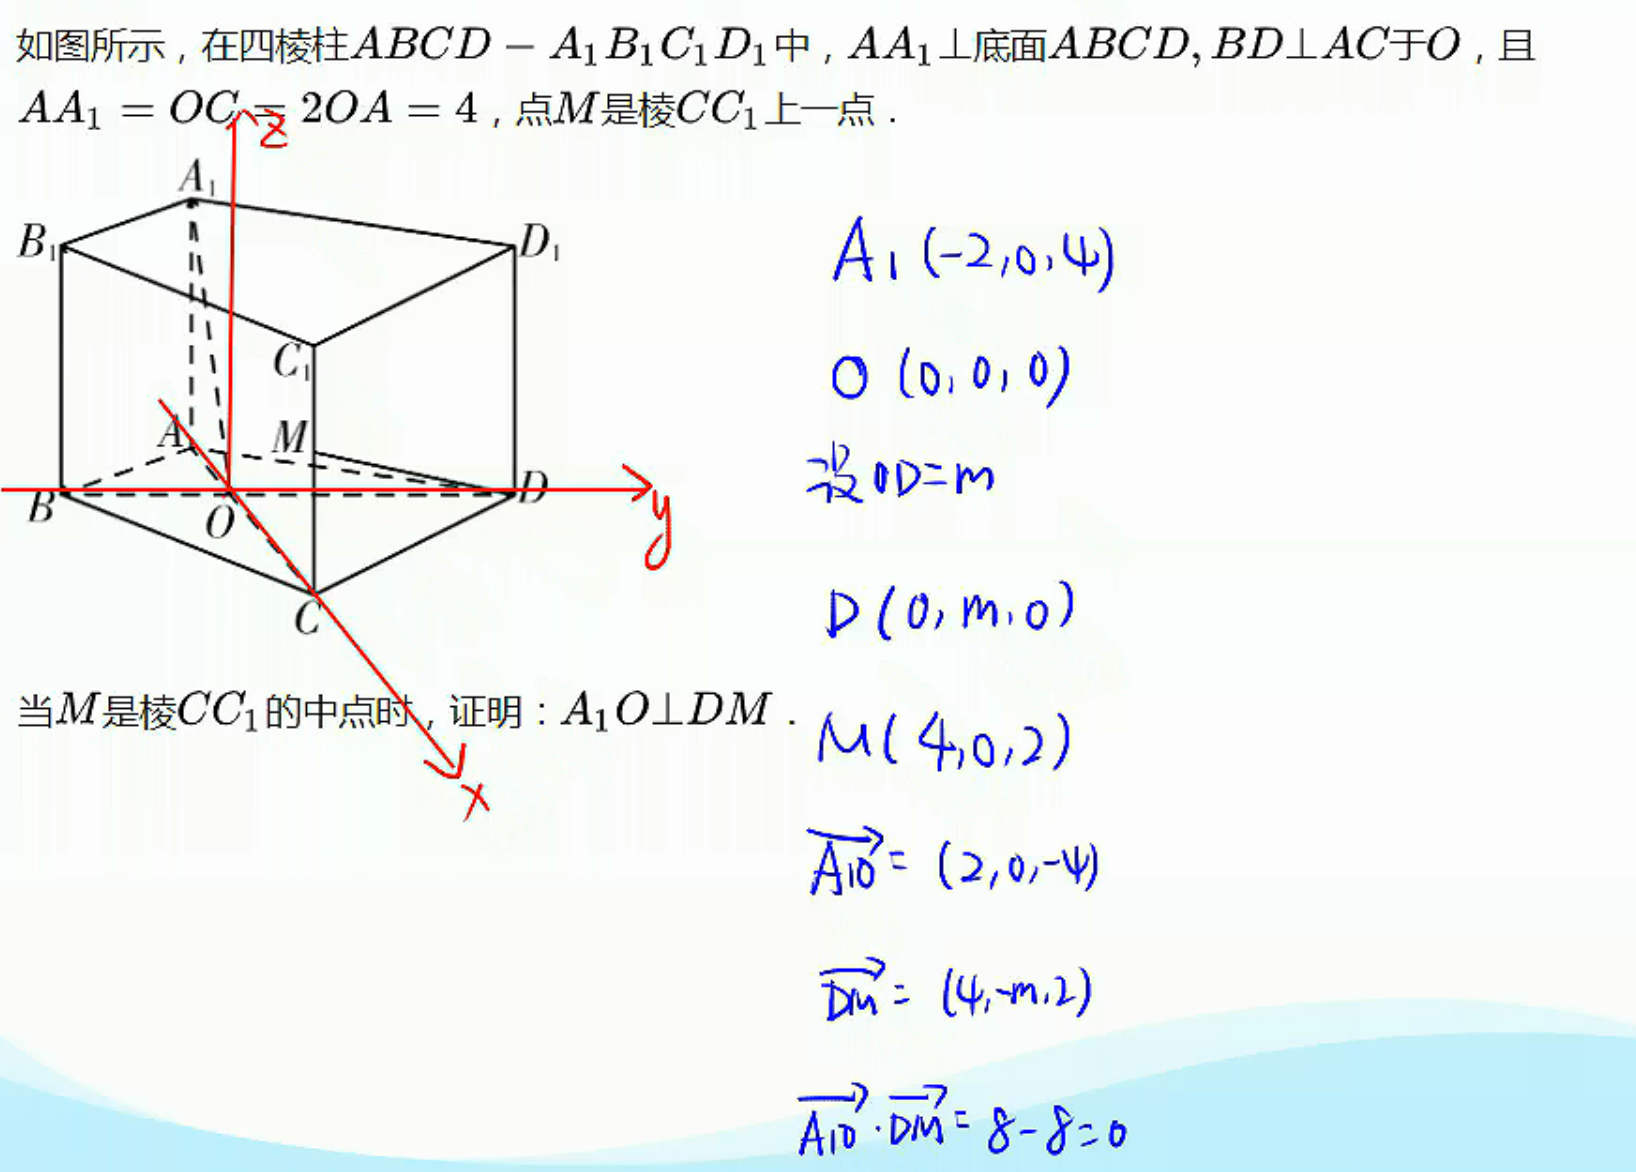 如图所示，在四棱柱ABCD − A₁B₁C₁D₁中，AA₁⊥底面ABCD, BD⊥AC于O，且
AA₁ = OC = 2OA = 4，点M是棱CC₁上一点．
z
A₁
B₁
D₁
C₁
A
M
B
O
D
y
C
x
当M是棱CC₁的中点时，证明：A₁O⊥DM．
A₁(-2,0,4)
O(0,0,0)
设OD=m
D(0,m,0)
M(4,0,2)
A₁O⃗=(2,0,-4)
DM⃗=(4,-m,2)
A₁O⃗·DM⃗=8-8=0